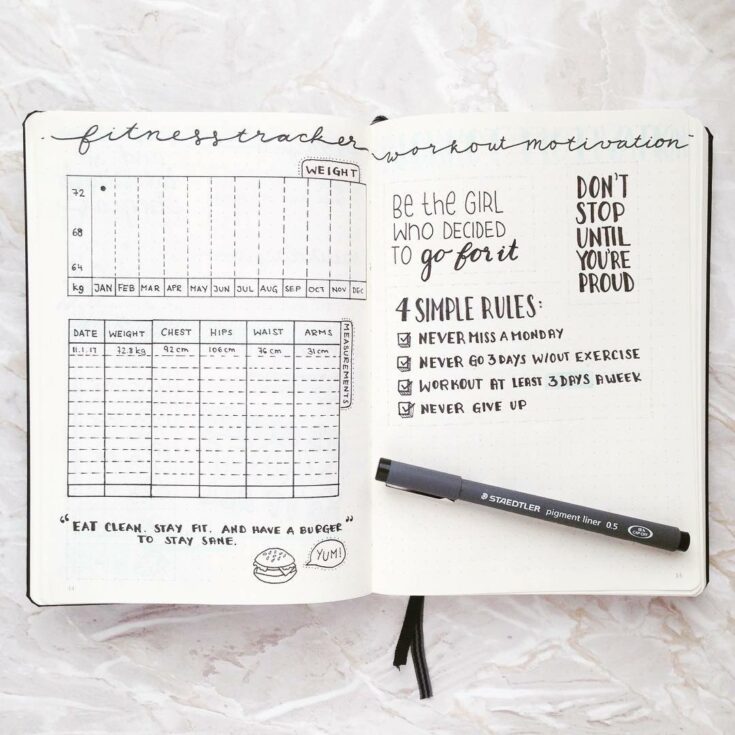 fitnesstracker
WEIGHT
72
68
64
kg JAN FEB MAR APR MAY JUN JUL AUG SEP OCT NOV DEC
DATE WEIGHT CHEST HIPS WAIST ARMS
11.1.17 72.3kg 92cm 106cm 76cm 31cm
MEASUREMENTS
"EAT CLEAN. STAY FIT. AND HAVE A BURGER"
TO STAY SANE.
YUM!
workout motivation
Be the GIRL
WHO DECIDED
TO go for it
DON'T
STOP
UNTIL
YOU'RE
PROUD
4 SIMPLE RULES:
NEVER MISS A MONDAY
NEVER GO 3 DAYS W/OUT EXERCISE
WORKOUT AT LEAST 3 DAYS A WEEK
NEVER GIVE UP
STAEDTLER pigment liner 0.5